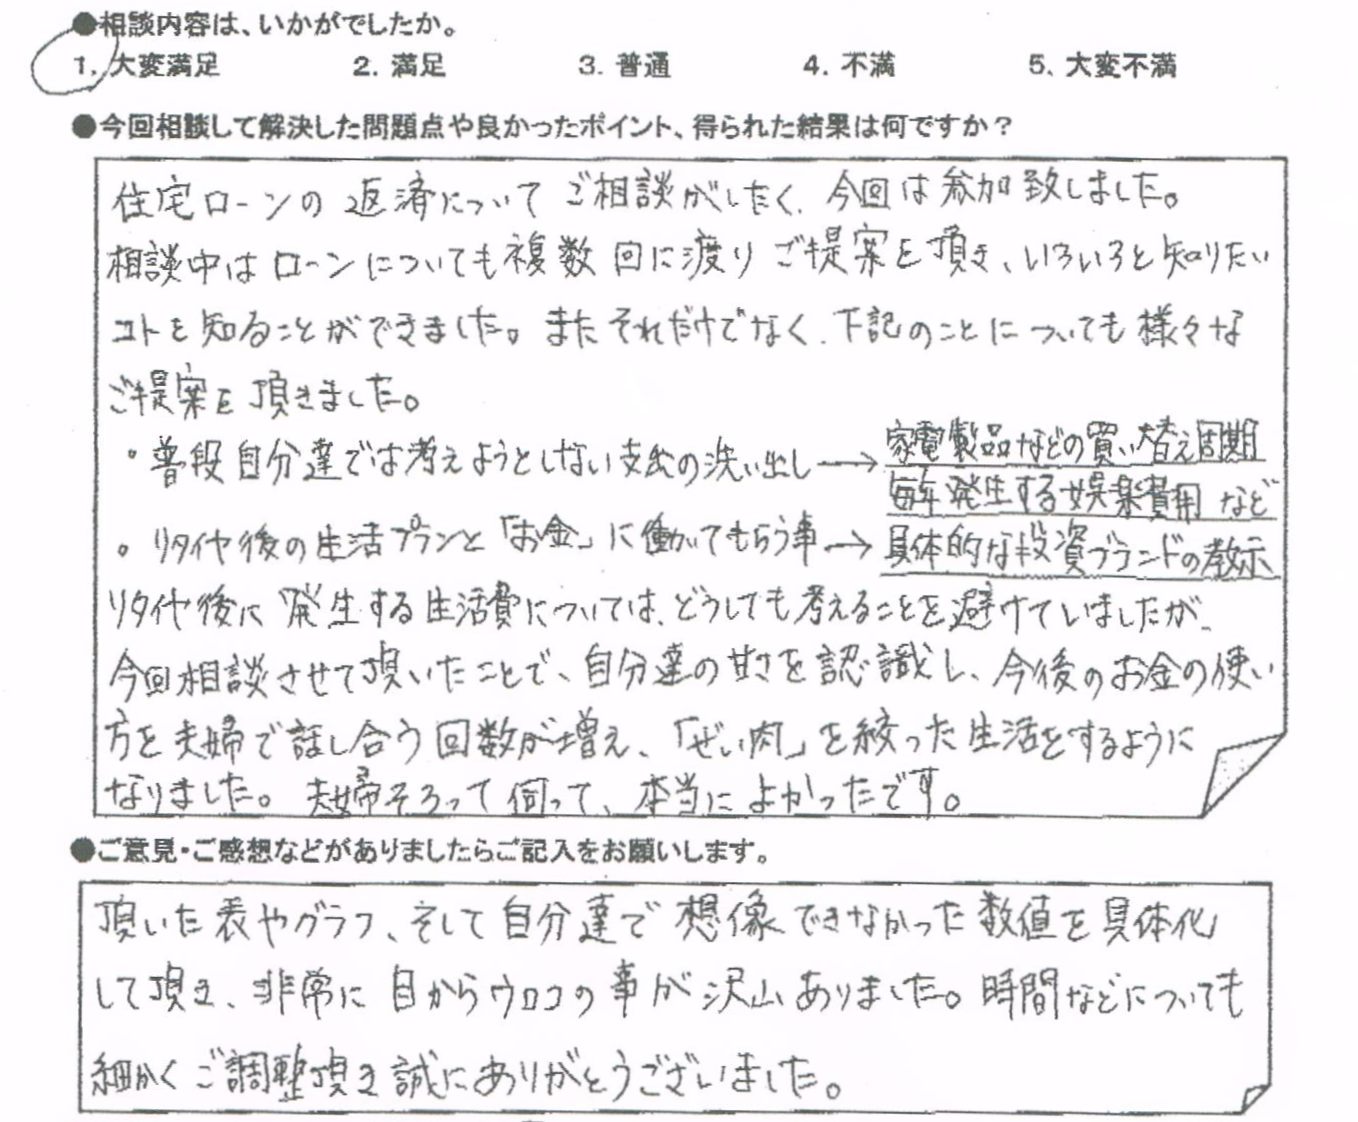 ●相談内容は、いかがでしたか。
1. 大変満足 2. 満足 3. 普通 4. 不満 5. 大変不満
●今回相談して解決した問題点や良かったポイント、得られた結果は何ですか？
住宅ローンの返済について ご相談がしたく、今回は参加致しました。
相談中はローンについても複数回に渡りご提案を頂き、いろいろと知りたい
コトを知ることができました。またそれだけでなく、下記のことについても様々な
ご提案を頂きました。
・普段自分達では考えようとしない支出の洗い出し→家電製品などの買い替え周期
毎年発生する娯楽費用など
。リタイヤ後の生活プランと「お金」に働いてもらう事→具体的な投資ブランドの教示
リタイヤ後に発生する生活費については、どうしても考えることを避けていましたが、
今回相談させて頂いたことで、自分達の甘さを認識し、今後のお金の使い
方を夫婦で話し合う回数が増え、「ぜい肉」を絞った生活をするように
なりました。夫婦そろって伺って、本当によかったです。
●ご意見・ご感想などがありましたらご記入をお願いします。
頂いた表やグラフ、そして自分達で想像できなかった数値を具体化
して頂き、非常に目からウロコの事が沢山ありました。時間などについても
細かくご調整頂き誠にありがとうございました。